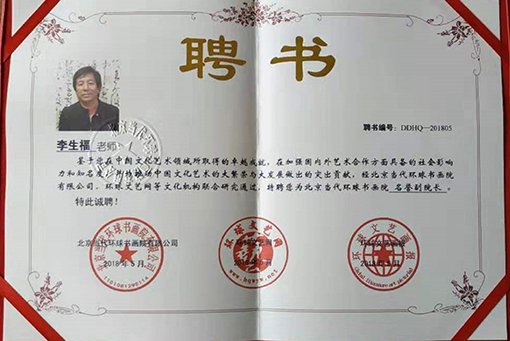 聘书
聘书编号：DDHQ—201805
李生福 老师
鉴于您在中国文化艺术领域所取得的卓越成就，在加强国内外艺术合作方面具备的社会影响
力和知名 中国文化艺术的大繁荣与大发展做出的突出贡献，经北京当代环球书画院
有限公司、环球文艺网等文化机构联合研究通过，特聘您为北京当代环球书画院 名誉副院长 。
特此诚聘！
北京当代环球书画院有限公司
2018年5月
环球文艺网
www.hqwyw.net
环球文艺画报
2018年5月